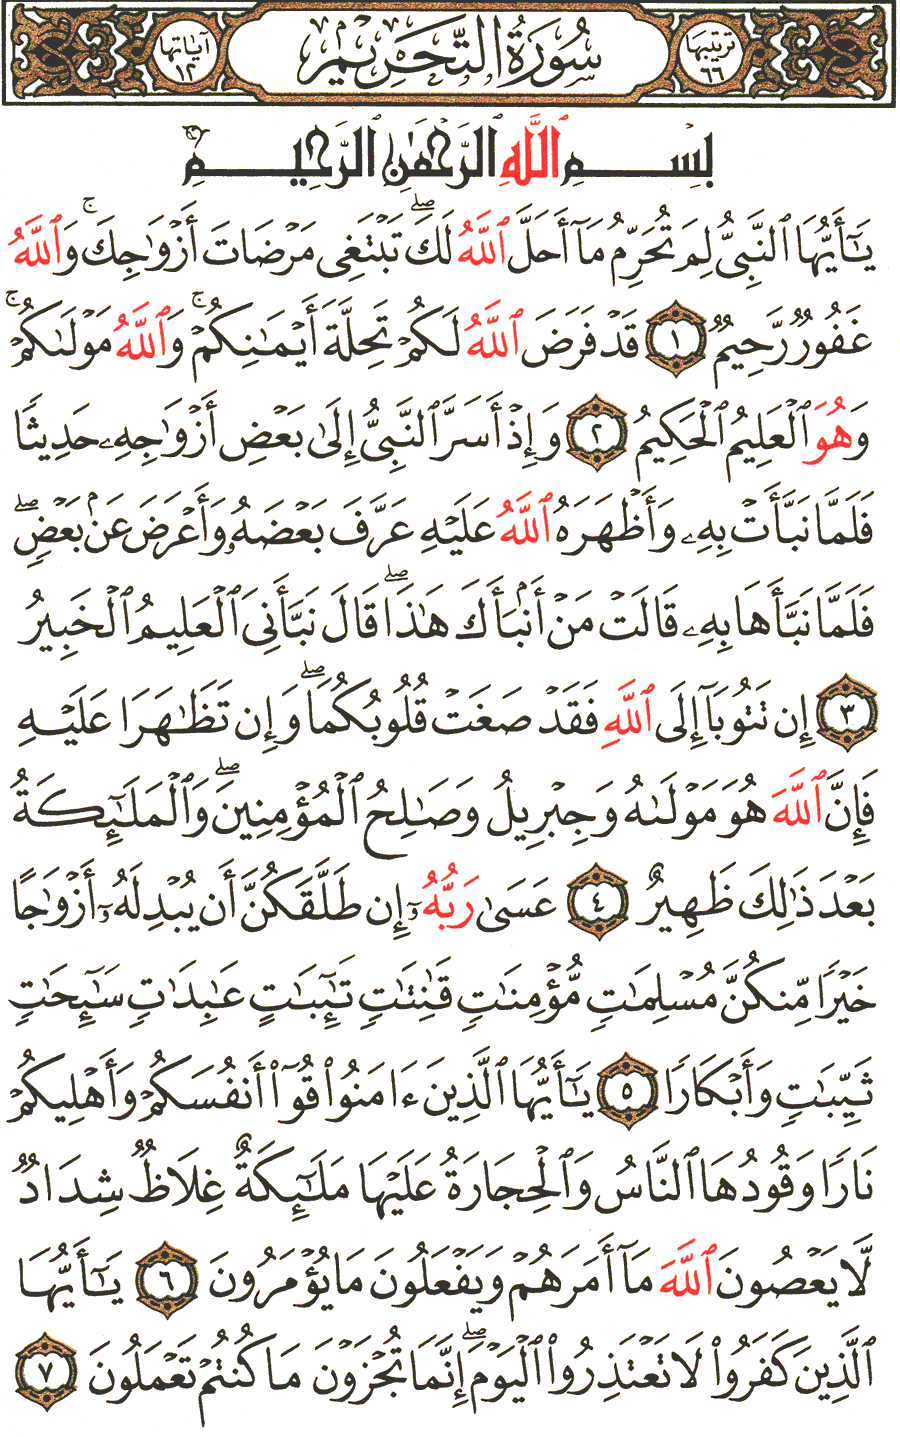 ترتيبها ٦٦ سُورَةُ التَّحْرِيمِ آيَاتها ١٢
بِسْمِ ٱللَّهِ ٱلرَّحْمَٰنِ ٱلرَّحِيمِ
يَـٰٓأَيُّهَا ٱلنَّبِىُّ لِمَ تُحَرِّمُ مَآ أَحَلَّ ٱللَّهُ لَكَ ۖ تَبْتَغِى مَرْضَاتَ أَزْوَٰجِكَ ۚ وَٱللَّهُ
غَفُورٌ رَّحِيمٌ ١ قَدْ فَرَضَ ٱللَّهُ لَكُمْ تَحِلَّةَ أَيْمَـٰنِكُمْ ۚ وَٱللَّهُ مَوْلَىٰكُمْ ۖ
وَهُوَ ٱلْعَلِيمُ ٱلْحَكِيمُ ٢ وَإِذْ أَسَرَّ ٱلنَّبِىُّ إِلَىٰ بَعْضِ أَزْوَٰجِهِۦ حَدِيثًا
فَلَمَّا نَبَّأَتْ بِهِۦ وَأَظْهَرَهُ ٱللَّهُ عَلَيْهِ عَرَّفَ بَعْضَهُۥ وَأَعْرَضَ عَنۢ بَعْضٍ ۖ
فَلَمَّا نَبَّأَهَا بِهِۦ قَالَتْ مَنْ أَنۢبَأَكَ هَـٰذَا ۖ قَالَ نَبَّأَنِىَ ٱلْعَلِيمُ ٱلْخَبِيرُ
٣ إِن تَتُوبَآ إِلَى ٱللَّهِ فَقَدْ صَغَتْ قُلُوبُكُمَا ۖ وَإِن تَظَـٰهَرَا عَلَيْهِ
فَإِنَّ ٱللَّهَ هُوَ مَوْلَىٰهُ وَجِبْرِيلُ وَصَـٰلِحُ ٱلْمُؤْمِنِينَ ۖ وَٱلْمَلَـٰٓئِكَةُ
بَعْدَ ذَٰلِكَ ظَهِيرٌ ٤ عَسَىٰ رَبُّهُۥٓ إِن طَلَّقَكُنَّ أَن يُبْدِلَهُۥٓ أَزْوَٰجًا
خَيْرًا مِّنكُنَّ مُسْلِمَـٰتٍ مُّؤْمِنَـٰتٍ قَـٰنِتَـٰتٍ تَـٰٓئِبَـٰتٍ عَـٰبِدَٰتٍ سَـٰٓئِحَـٰتٍ
ثَيِّبَـٰتٍ وَأَبْكَارًا ٥ يَـٰٓأَيُّهَا ٱلَّذِينَ ءَامَنُوا۟ قُوٓا۟ أَنفُسَكُمْ وَأَهْلِيكُمْ
نَارًا وَقُودُهَا ٱلنَّاسُ وَٱلْحِجَارَةُ عَلَيْهَا مَلَـٰٓئِكَةٌ غِلَاظٌ شِدَادٌ
لَّا يَعْصُونَ ٱللَّهَ مَآ أَمَرَهُمْ وَيَفْعَلُونَ مَا يُؤْمَرُونَ ٦ يَـٰٓأَيُّهَا
ٱلَّذِينَ كَفَرُوا۟ لَا تَعْتَذِرُوا۟ ٱلْيَوْمَ ۖ إِنَّمَا تُجْزَوْنَ مَا كُنتُمْ تَعْمَلُونَ ٧